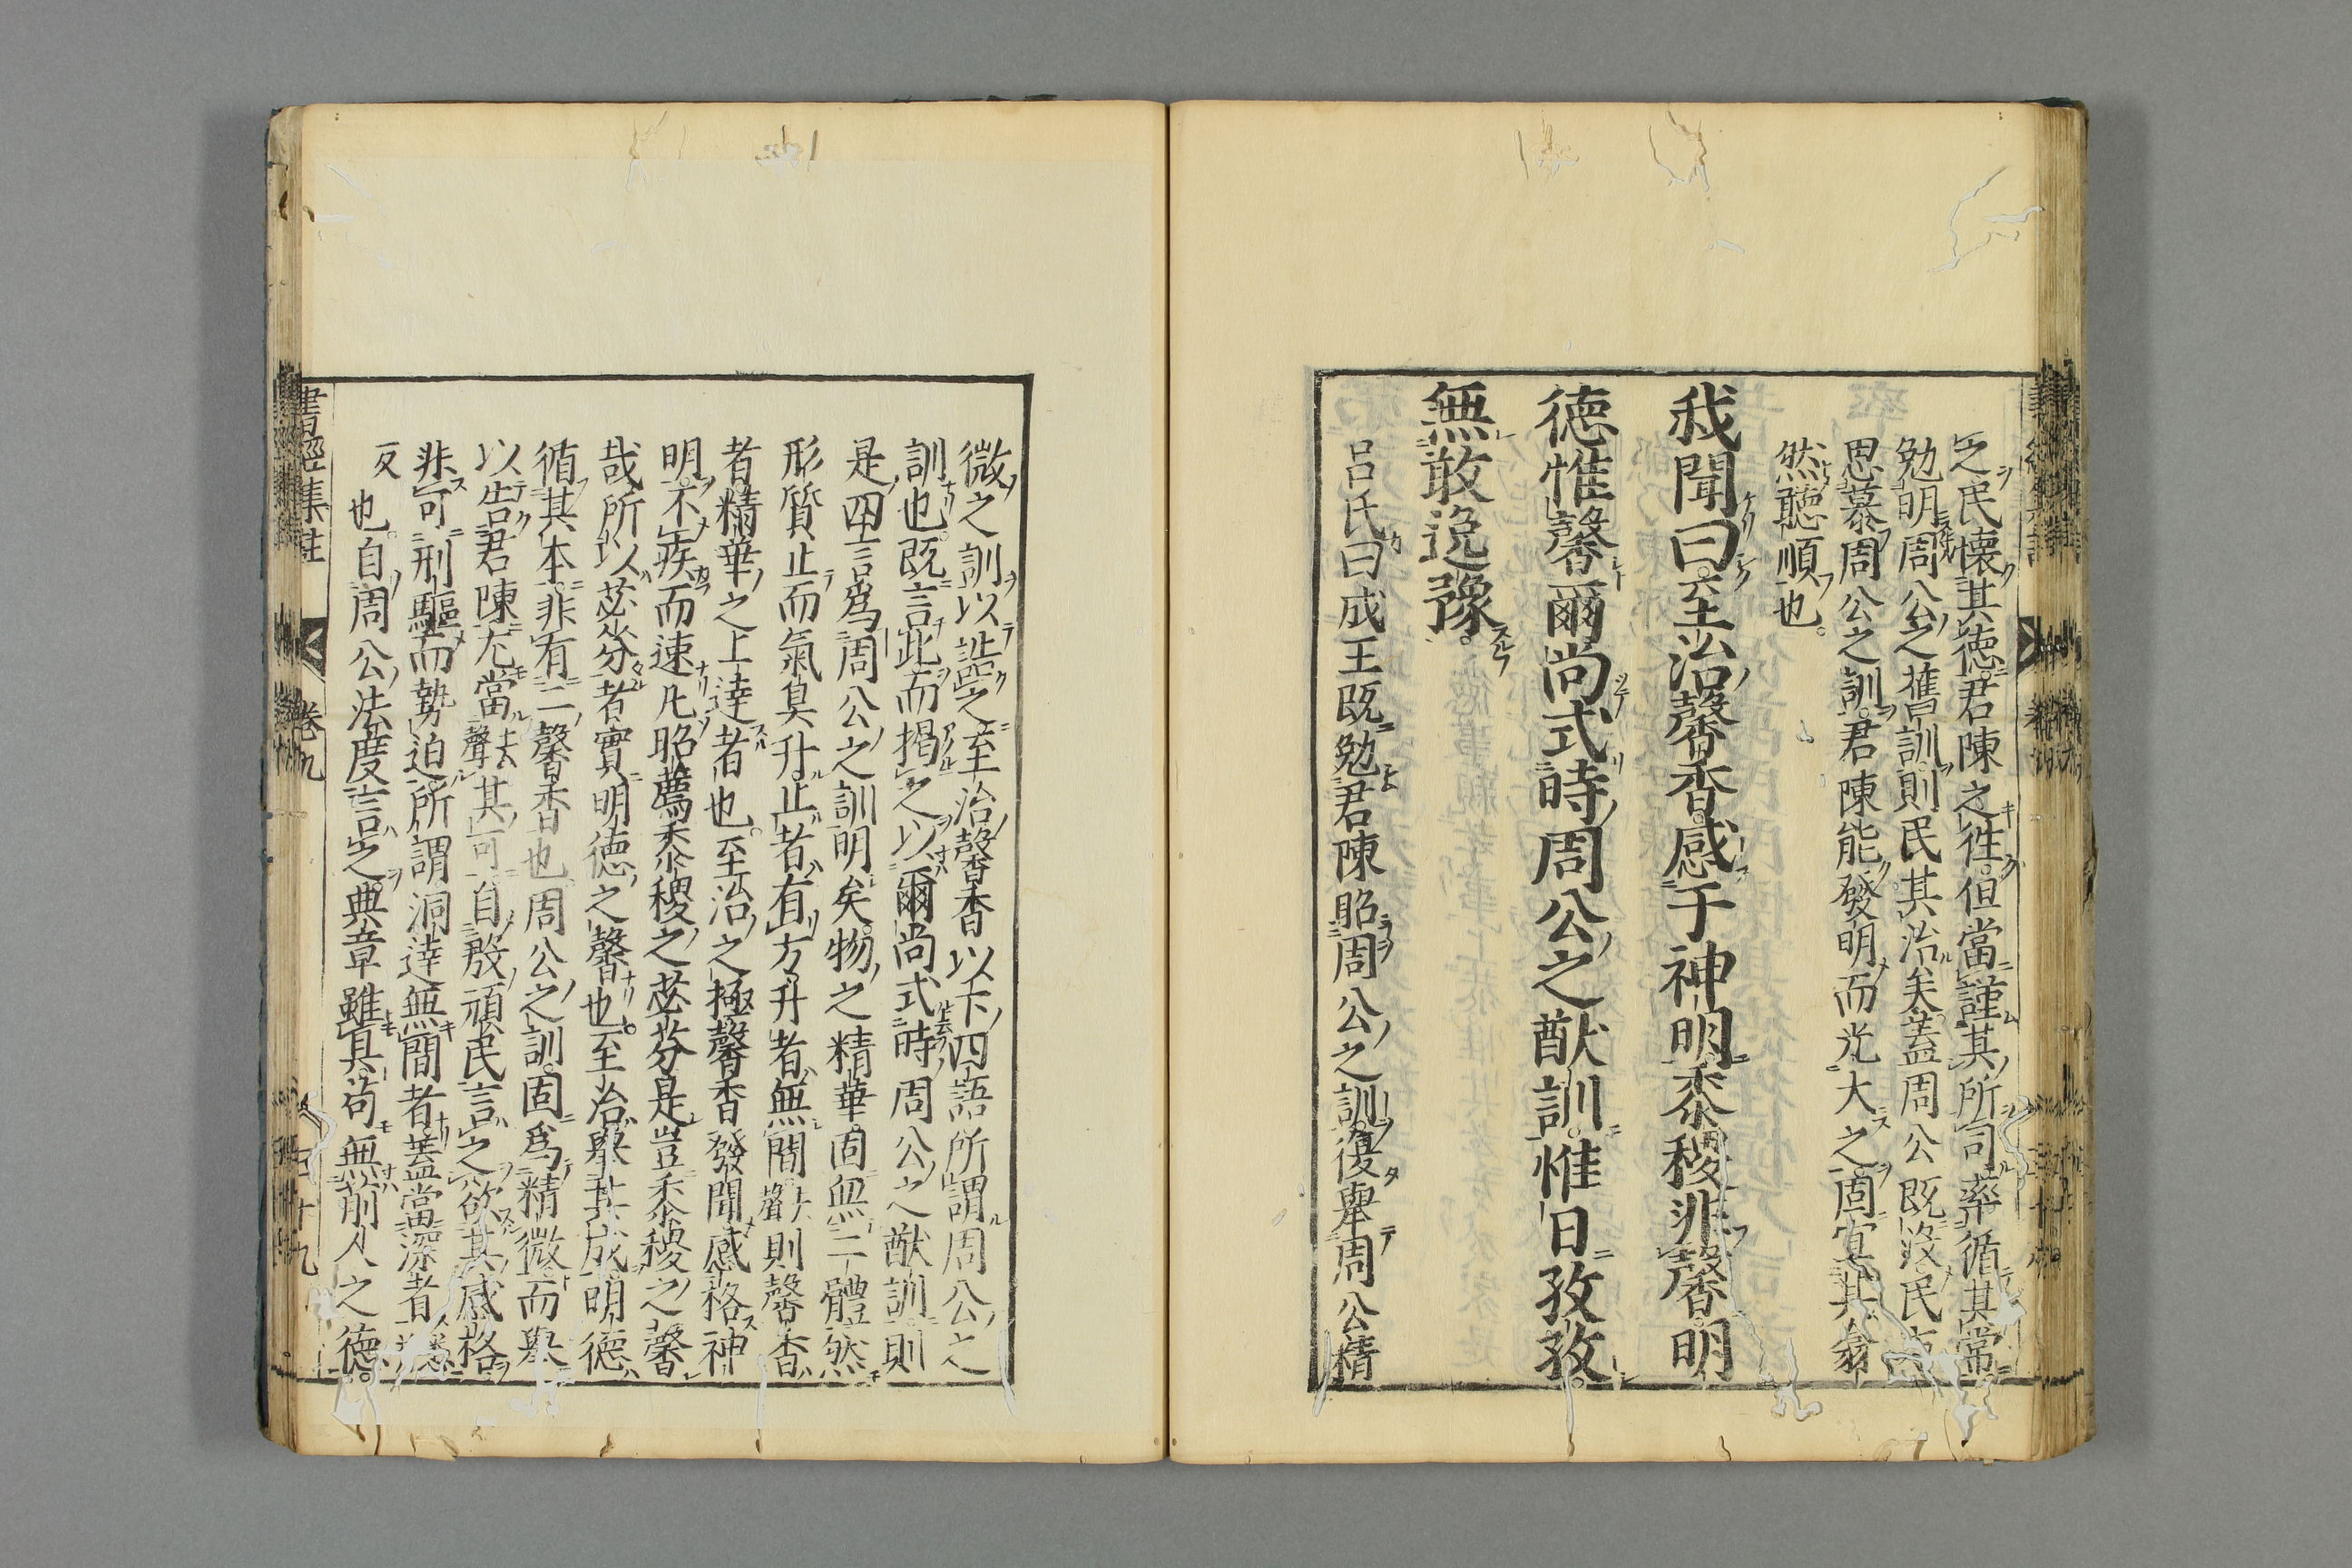 之民懷其德君陳之徃但當謹其所司率循其常
勉明周公之舊訓則民其治矣蓋周公既沒民方
思慕周公之訓君陳能發明而光大之固宜其翕
然聽順也
我聞曰至治馨香感于神明黍稷非馨明
德惟馨爾尚式時周公之猷訓惟日孜孜
無敢逸豫
呂氏曰成王既勉君陳昭周公之訓復舉周公精
微之訓以告之至治馨香以下四語所謂周公之
訓也既言此而揭之以爾尚式時周公之猷訓則
是四言爲周公之訓明矣物之精華固無二體然
形質止而氣臭升止者有方升者無間去聲則馨香
者精華之上達者也至治之極馨香發聞感格神
明不疾而速凡昭薦黍稷之苾芬是豈黍稷之馨
哉所以苾芬者實明德之馨也至治舉其成明德
循其本非有二馨香也周公之訓固爲精微而舉
以告君陳尤當去聲其可自殷頑民言之欲其感格
非可刑驅而勢迫所謂洞達無間者蓋當深省悉井
反
也自周公法度言之典章雖具苟無前人之德
書經集註 卷九 四十九